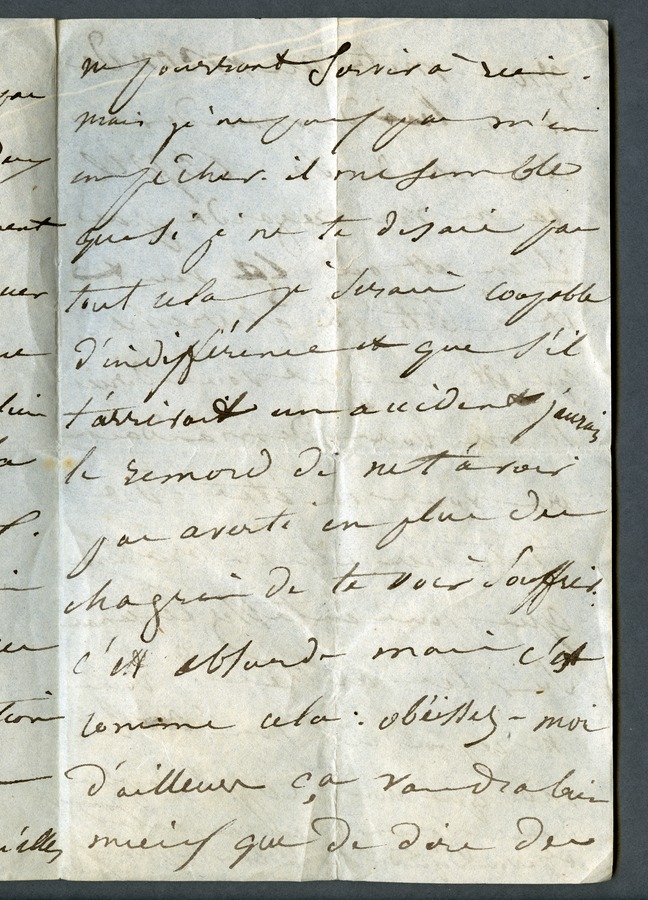 ne pourront servir à rien.
mais je ne puis pas m'en
empêcher. il me semble
que si je ne te disais pas
tout cela je serais coupable
d'indifférence et que s'il
t'arrivait un accident j'aurais
le remord de ne t'avoir
pas averti en plus du
chagrin de te voir souffrir.
c'est absurde mais c'est
comme cela : obéissez-moi
d'ailleurs ça vaudra bien
mieux que de dire des